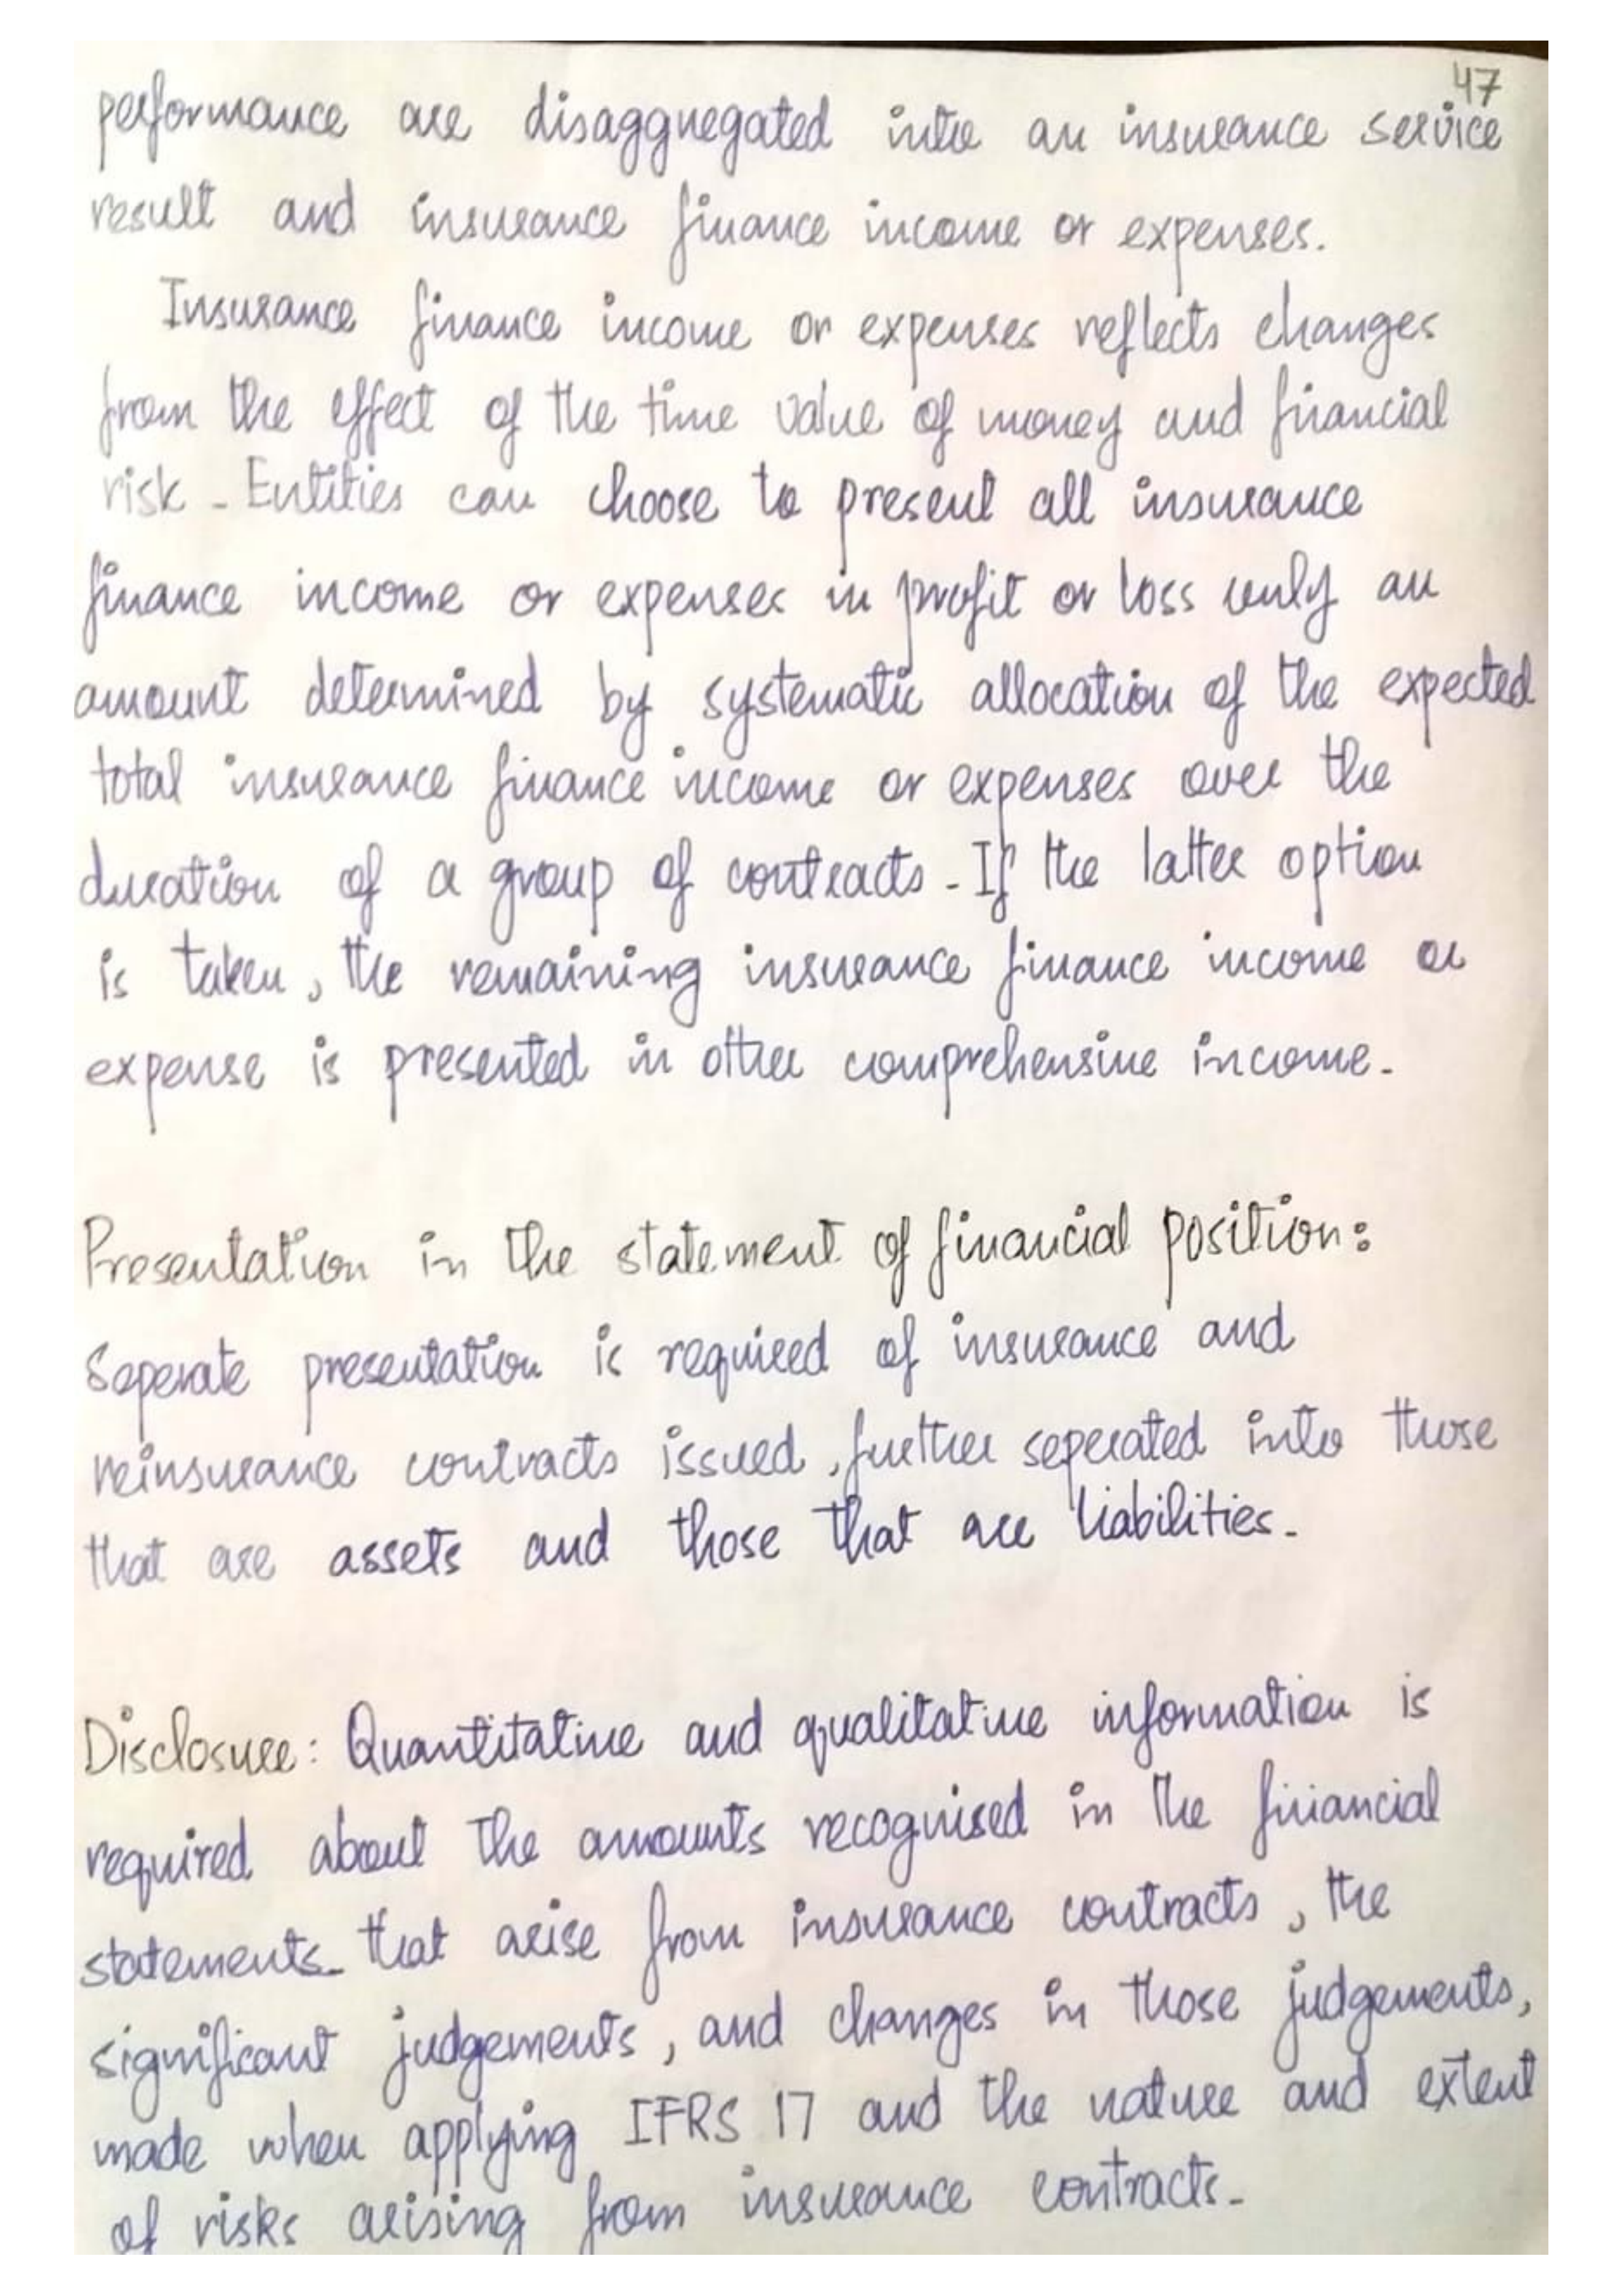 47
performance are disaggregated into an insurance service
result and insurance finance income or expenses.
Insurance finance income or expenses reflects changes
from the effect of the time value of money and financial
risk. Entities can choose to present all insurance
finance income or expenses in profit or loss only an
amount determined by systematic allocation of the expected
total insurance finance income or expenses over the
duration of a group of contracts. If the latter option
is taken, the remaining insurance finance income or
expense is presented in other comprehensive income.
Presentation in the statement of financial position:
Seperate presentation is required of insurance and
reinsurance contracts issued, further seperated into those
that are assets and those that are liabilities.
Disclosure: Quantitative and qualitative information is
required about the amounts recognised in the financial
statements that arise from insurance contracts, the
significant judgements, and changes in those judgements,
made when applying IFRS 17 and the nature and extent
of risks arising from insurance contracts.